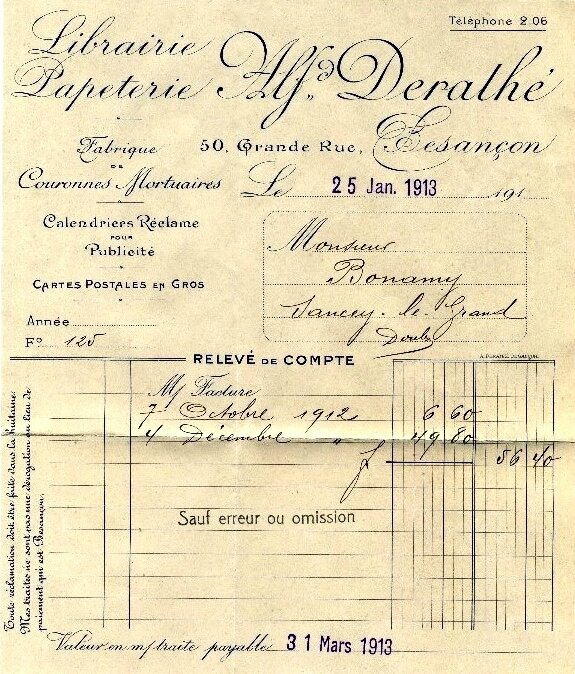 Téléphone 2.06
Librairie
Papeterie
Alf.d Derathé
50, Grande Rue, Besançon
Fabrique
DE
Couronnes Mortuaires
Calendriers Réclame
POUR
Publicité
CARTES POSTALES EN GROS
Année
F° 125
Le 25 Jan. 1913 191
Monsieur
Bonamy
Sancey-le-Grand
Doubs
RELEVÉ DE COMPTE
M/ Facture
7 Octobre 1912 6 60
4 Décembre " 49 80
f 56 40
Sauf erreur ou omission
Toute réclamation doit être faite dans la huitaine.
Mes traites ne sont pas une dérogation au lieu de
paiement qui est Besançon.
Valeur en m/ traite payable 31 Mars 1913